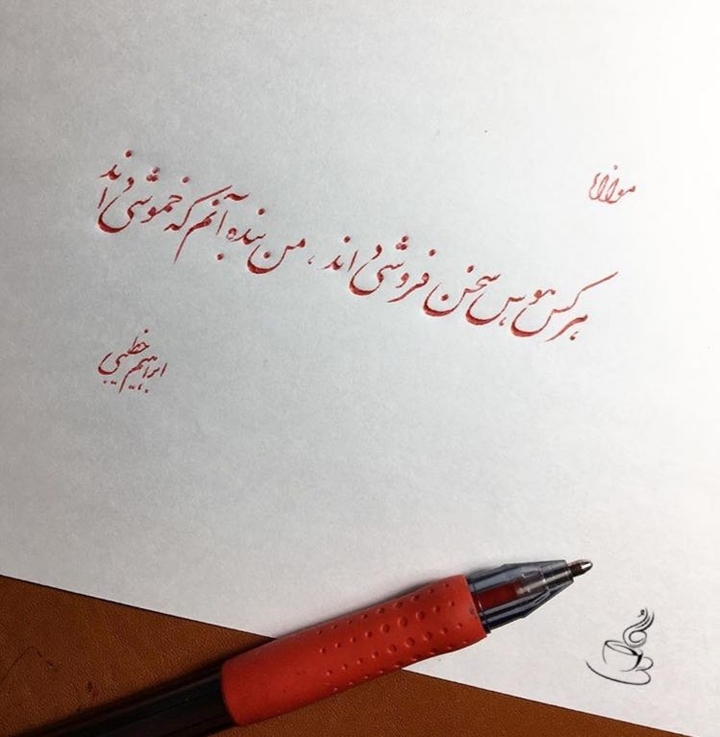 مولانا
هر کس هوس سخن فروشی داند ، من بنده آنم که خموشی داند
ابراهیم خطیبی